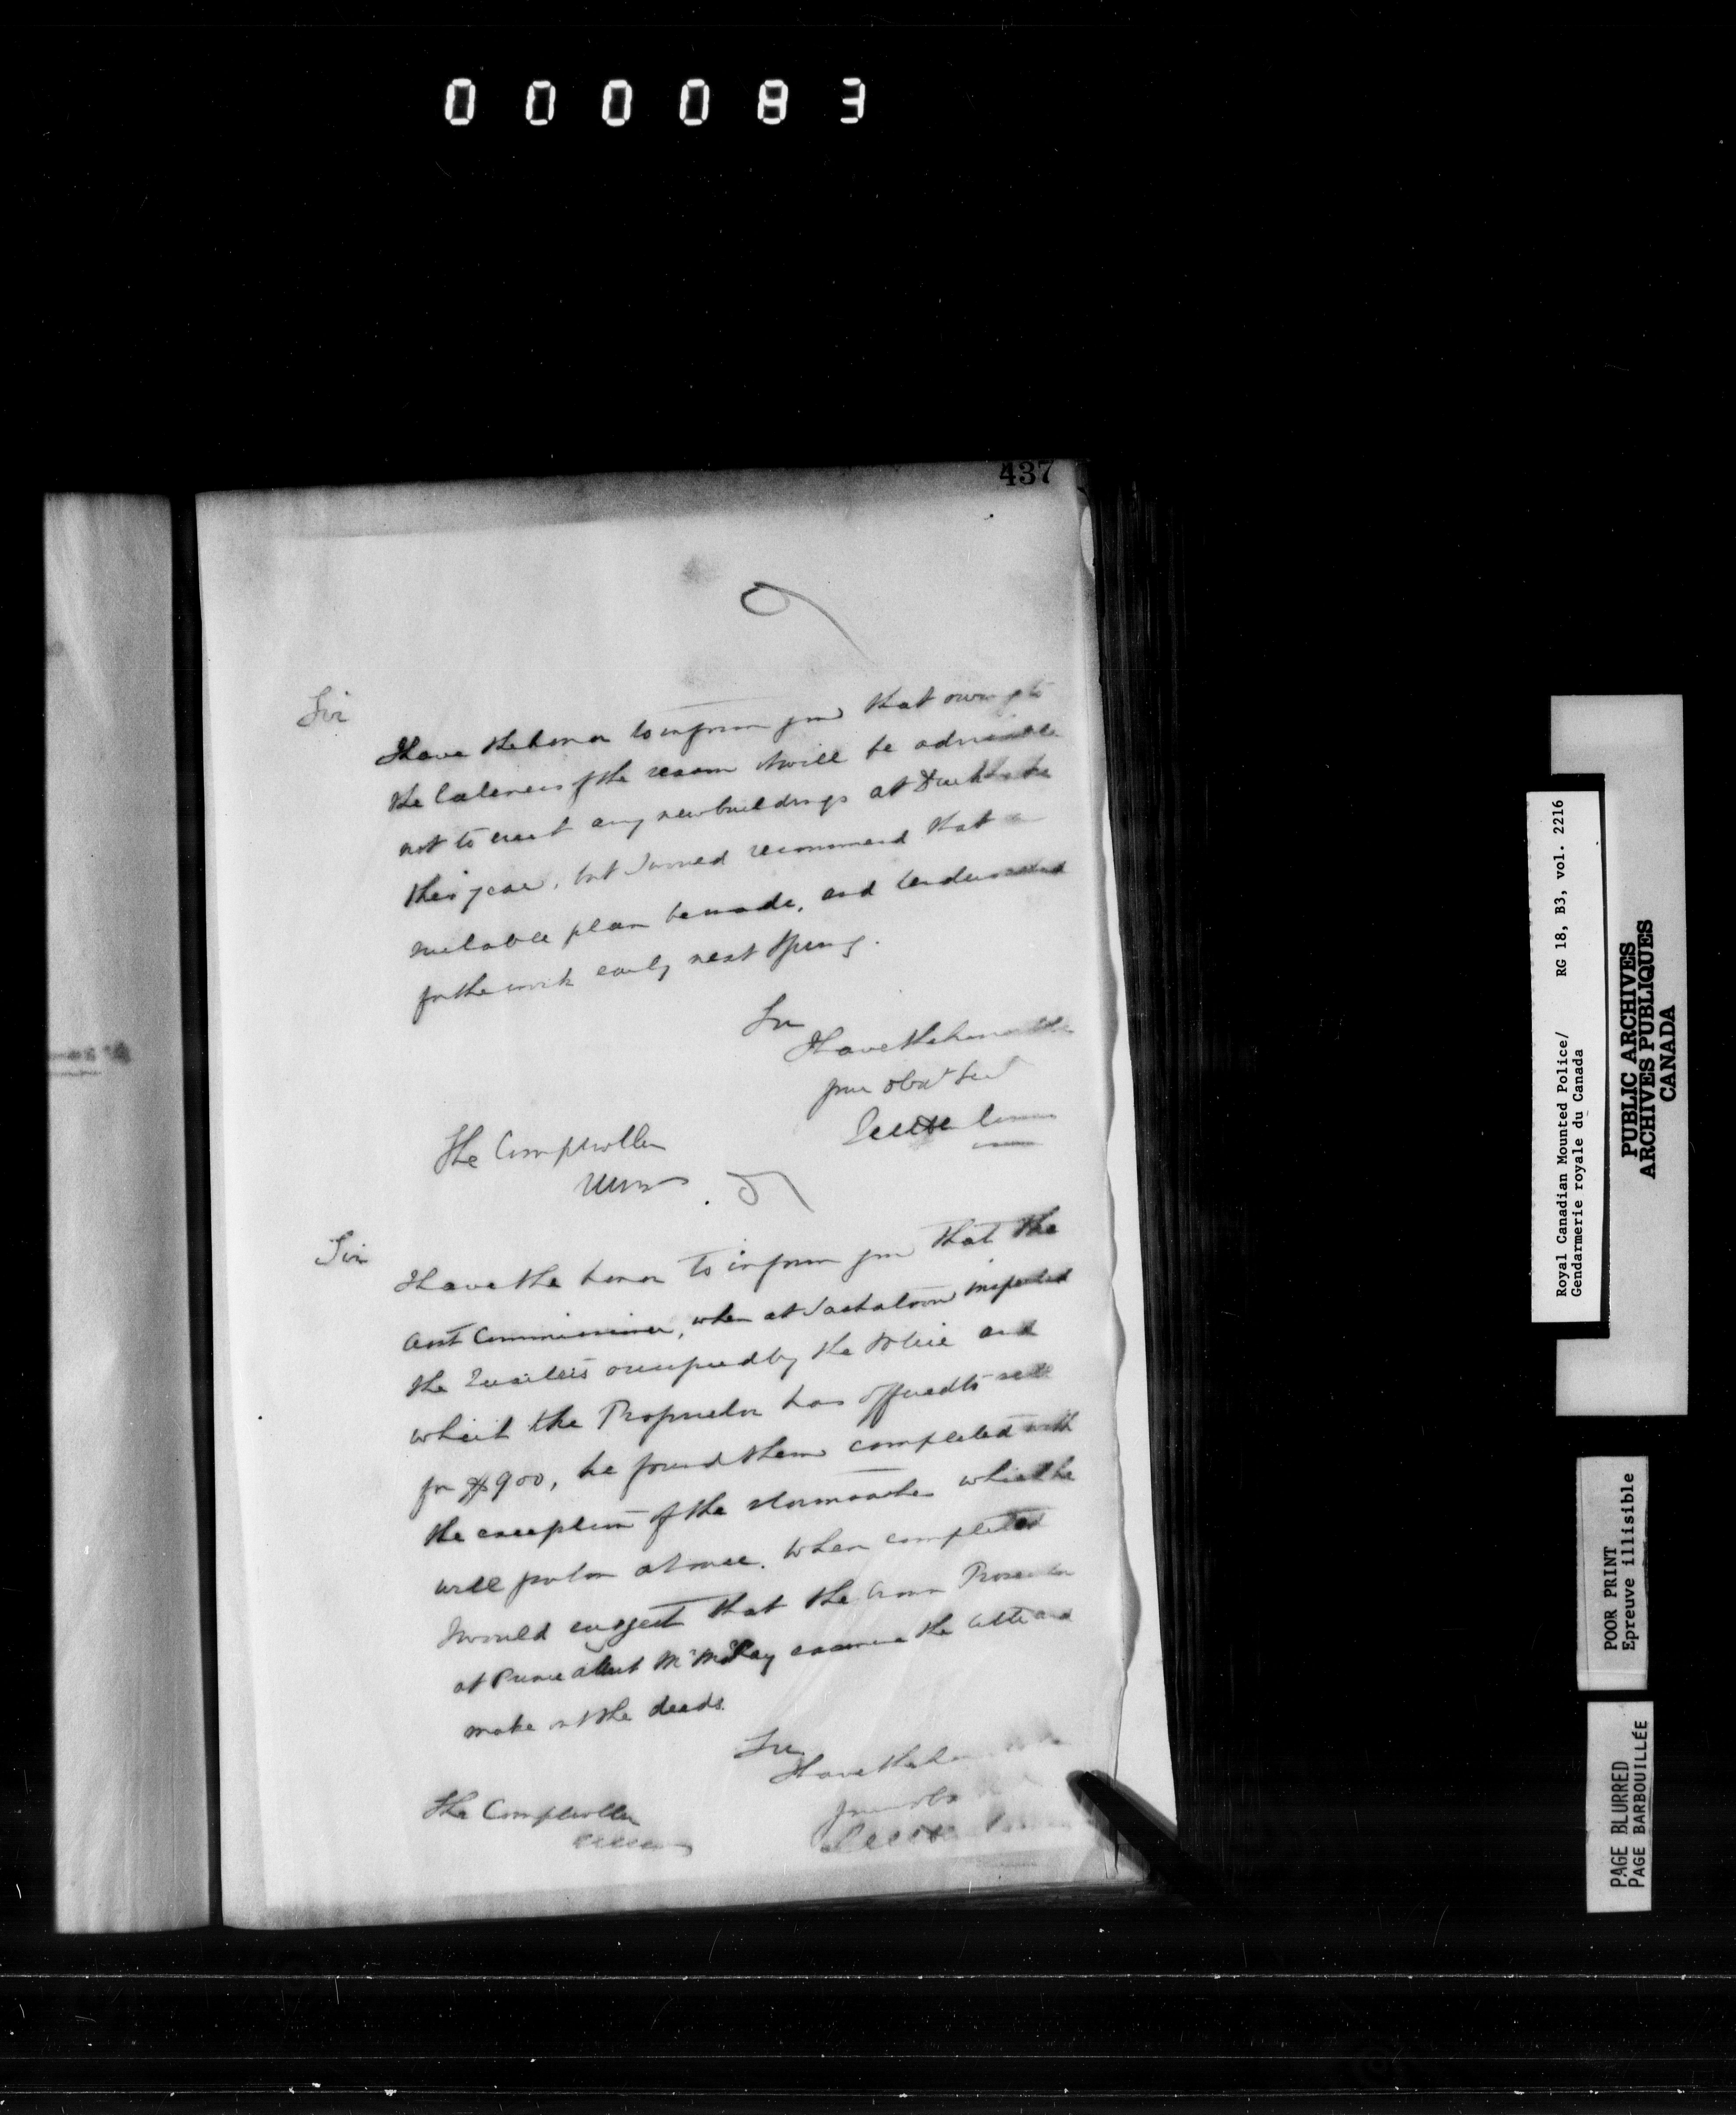 000083
437
Sir
I have the honor to inform you that owing to
the lateness of the season it will be advisable
not to erect any new buildings at Duck Lake
this year, but I would recommend that a
suitable plan be made, and tenders
for the work early next Spring.
Sir
I have the honor
your obdt Servt
The Comptroller
Sir
I have the honor to inform you that the
Asst Commissioner, when at Saskatoon inspected
the Quarters occupied by the Police and
which the Proprietor has offered to sell
for $900, he found them completed with
the exception of the storm sashes which he
will put on at once. When completed
I would suggest that the Crown Prosecutor
at Prince Albert Mr McKay examine the title and
make out the deeds.
Sir
I have the honor
The Comptroller
Royal Canadian Mounted Police/ RG 18, B3, vol. 2216
Gendarmerie royale du Canada
PUBLIC ARCHIVES
ARCHIVES PUBLIQUES
CANADA
POOR PRINT
Epreuve illisible
PAGE BLURRED
PAGE BARBOUILLÉE